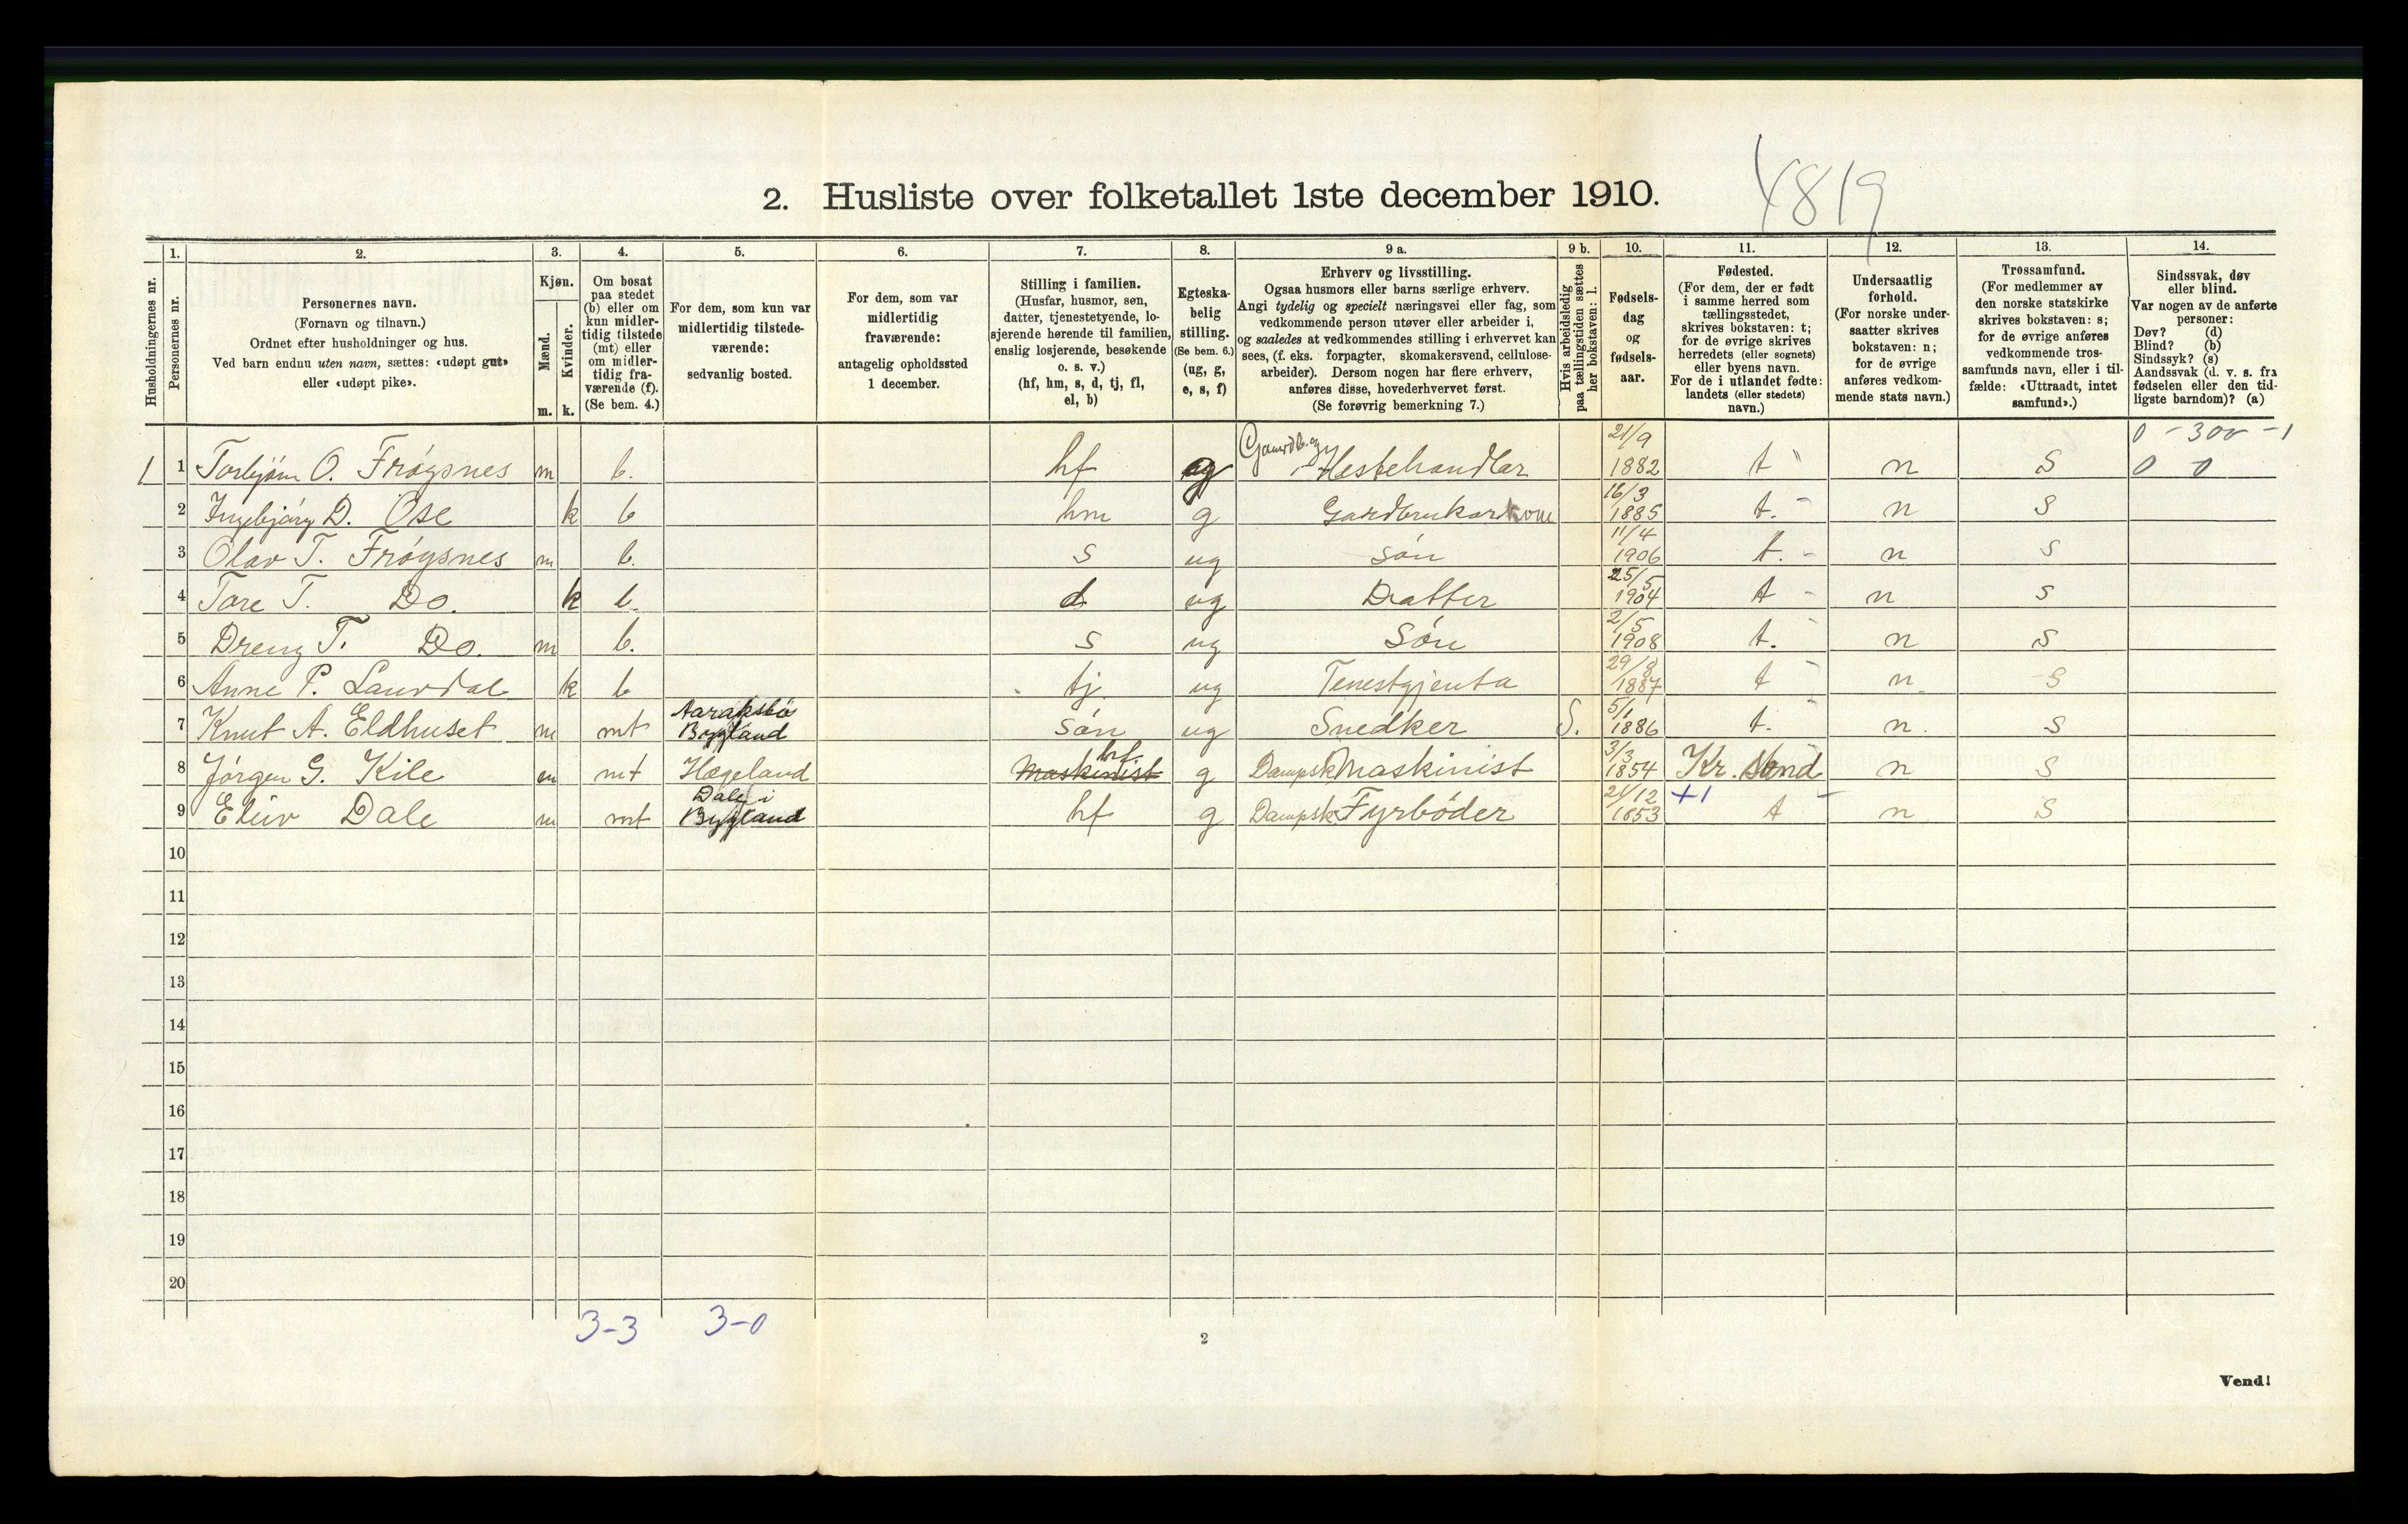 4819
2. Husliste over folketallet 1ste december 1910.
Husholdningernes nr.
1. Personernes nr.
2. Personernes navn.
(Fornavn og tilnavn.)
Ordnet efter husholdninger og hus.
Ved barn endnu uten navn, sættes: «udøpt gut»
eller «udøpt pike».
3. Kjøn.
Mænd. m.
Kvinder. k.
4. Om bosat
paa stedet
(b) eller om
kun midler-
tidig tilstede
(mt) eller
om midler-
tidig fra-
værende (f).
(Se bem. 4.)
5. For dem, som kun var
midlertidig tilstede-
værende:
sedvanlig bosted.
6. For dem, som var
midlertidig
fraværende:
antagelig opholdssted
1 december.
7. Stilling i familien.
(Husfar, husmor, søn,
datter, tjenestetyende, lo-
sjerende hørende til familien,
enslig losjerende, besøkende
o. s. v.)
(hf, hm, s, d, tj, fl,
el, b)
8. Egteska-
belig
stilling.
(Se bem. 6.)
(ug, g,
e, s, f)
9 a. Erhverv og livsstilling.
Ogsaa husmors eller barns særlige erhverv.
Angi tydelig og specielt næringsvei eller fag, som
vedkommende person utøver eller arbeider i,
og saaledes at vedkommendes stilling i erhvervet kan
sees, (f. eks. forpagter, skomakersvend, cellulose-
arbeider). Dersom nogen har flere erhverv,
anføres disse, hovederhvervet først.
(Se forøvrig bemerkning 7.)
9 b. Hvis arbeidsledig
paa tællingstiden sættes
her bokstaven: l.
10. Fødsels-
dag
og
fødsels-
aar.
11. Fødested.
(For dem, der er født
i samme herred som
tællingsstedet,
skrives bokstaven: t;
for de øvrige skrives
herredets (eller sognets)
eller byens navn.
For de i utlandet fødte:
landets (eller stedets)
navn.)
12. Undersaatlig
forhold.
(For norske under-
saatter skrives
bokstaven: n;
for de øvrige
anføres vedkom-
mende stats navn.)
13. Trossamfund.
(For medlemmer av
den norske statskirke
skrives bokstaven: s;
for de øvrige anføres
vedkommende tros-
samfunds navn, eller i til-
fælde: «Uttraadt, intet
samfund».)
14. Sindssvak, døv
eller blind.
Var nogen av de anførte
personer:
Døv? (d)
Blind? (b)
Sindssyk? (s)
Aandssvak (d. v. s. fra
fødselen eller den tid-
ligste barndom)? (a)
1 1 Torbjørn O. Frøysnes m b. hf g Gaardb. og Hestehandlar 21/9 1882 t n S 0 0
2 Ingebjørg D. Ose k b hm g Gardbrukarkone 16/3 1885 t. n S
3 Olav T. Frøysnes m b. s ug søn 11/4 1906 t. n s
4 Tore T. Do. k b. d ug Datter 25/5 1904 t n s
5 Dreng T. Do. m b. s ug Søn 2/5 1908 t. n s
6 Anne P. Lauvdal k b tj. ug Tenestgjenta 29/8 1887 t n. S
7 Knut A. Eldhuset m mt Aaraksbø Bygland søn ug Snedker S. 5/1 1886 t. n. s
8 Jørgen G. Kile m mt Hægeland Maskinist hf g Dampsk. Maskinist 3/3 1854 Kr. sand n S
9 Eliv Dale m mt Dale i Bygland hf g Dampsk. Fyrbøder 21/12 1853 +1 t n S
10
11
12
13
14
15
16
17
18
19
20
3-3 3-0
2
Vend!